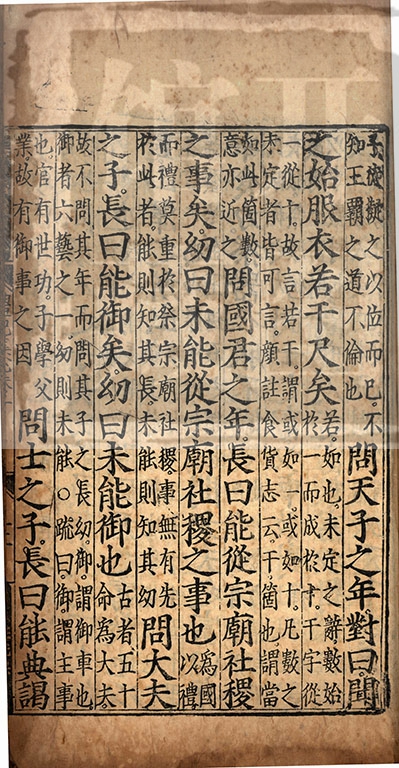 從擬之以位而已。不
知王霸之道不倫也
問天子之年。對曰。聞
之始服衣若干尺矣
若。如也。未定之辭。數始
於一而成於十。干字從
一從十。故言若干。謂或如一。或如十。凡數之
未定者皆可言。顏註食貨志云。干。箇也。謂當
如此箇數。
意亦近之
問國君之年。長曰能從宗廟社稷
之事矣。幼曰未能從宗廟社稷之事也
為國
以禮
而禮莫重於祭。宗廟社稷。事無有先
於此者。能則知其長。未能則知其幼
問大夫
之子。長曰能御矣。幼曰未能御也
古者五十
命為大夫。
故不問其年而問其子之長幼。御。謂御車也。
御者六藝之一。幼則未能○疏曰。御謂主事
也。官有世功。子學父
業。故有御事之因
問士之子。長曰能典謁